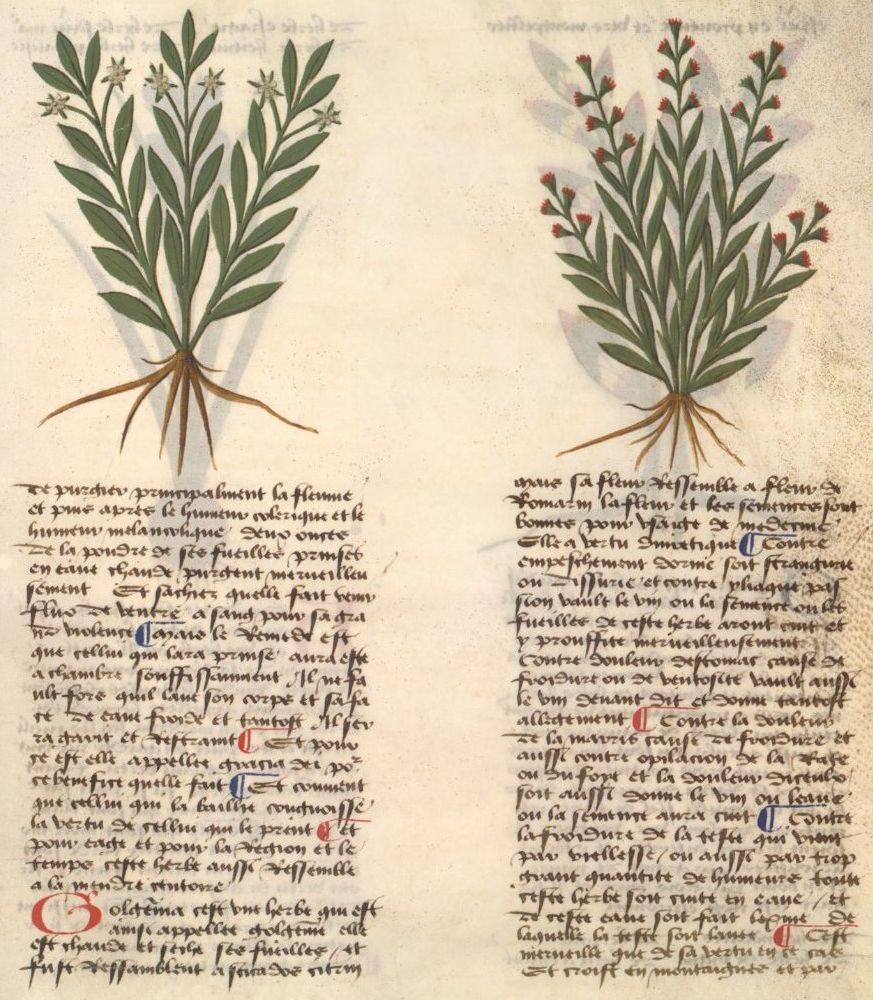 de purgier principalment la fleume
et puis apres le humeur colerique et le
humeur melancolique deux onces
de la poudre de ses fueilles prinses
en eaue chaude purgent merueilleu
sement Et sachez quelle fait venir
flux de ventre a sang pour sa gra
nd violence ¶ mais le Remede est
que cellui qui lara prinse aura este
a chambre souffissanment Il ne fa
ult fors quil laue son corps et sa fa
ce de eaue froide et tantost Il ser
ra garit et Restraint ¶ Et pour
ce est elle appellee gracia dei por
ce benefice quelle fait ¶ Et conuient
que cellui qui la baille congnoisse
la vertu de cellui qui le prent ¶ et
pour eage et pour la Region et le
temps ceste herbe aussi Ressemble
a la mendre centoire
Golgema cest vne herbe qui est
ainsi appellee golgeme elle
est chaude et seche ses fueilles et
fust Ressamblent a sticados citrin
mais sa fleur Ressemble a fleur de
Romarin la fleur et les semences sont
bonnes pour vsaige de medecine
Elle a vertu diuretique ¶ Contre
empeschement dorine soit strangurie
ou dissurie et contre yliaque pas
sion vault le vin ou la semence ou les
fueilles de ceste herbe aront cuit et
y prouffite merueilleusement
Contre douleur destomac cause de
froidure ou de ventosite vault aussi
le vin deuant dit et donne tantost
allegement ¶ Contre la douleur
de la mauris cause de froidure et
aussi contre opilacion de la Rate
ou du foye et la douleur diceulx
soit aussi donne le vin ou leaue
ou la semence aura cuit ¶ Contre
la froidure de la teste qui vient
par viellesse ou aussi par trop
grant quantite de humeurs toute
ceste herbe soit cuite en eaue et
de ceste eaue soit fait lexiue de
laquelle la teste soit lauee ¶ Cest
merueille que de sa vertu en ce cas
Et croist en montaignes et par